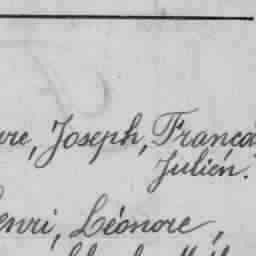 re, Joseph, França
Julien.
enri, Léonore,